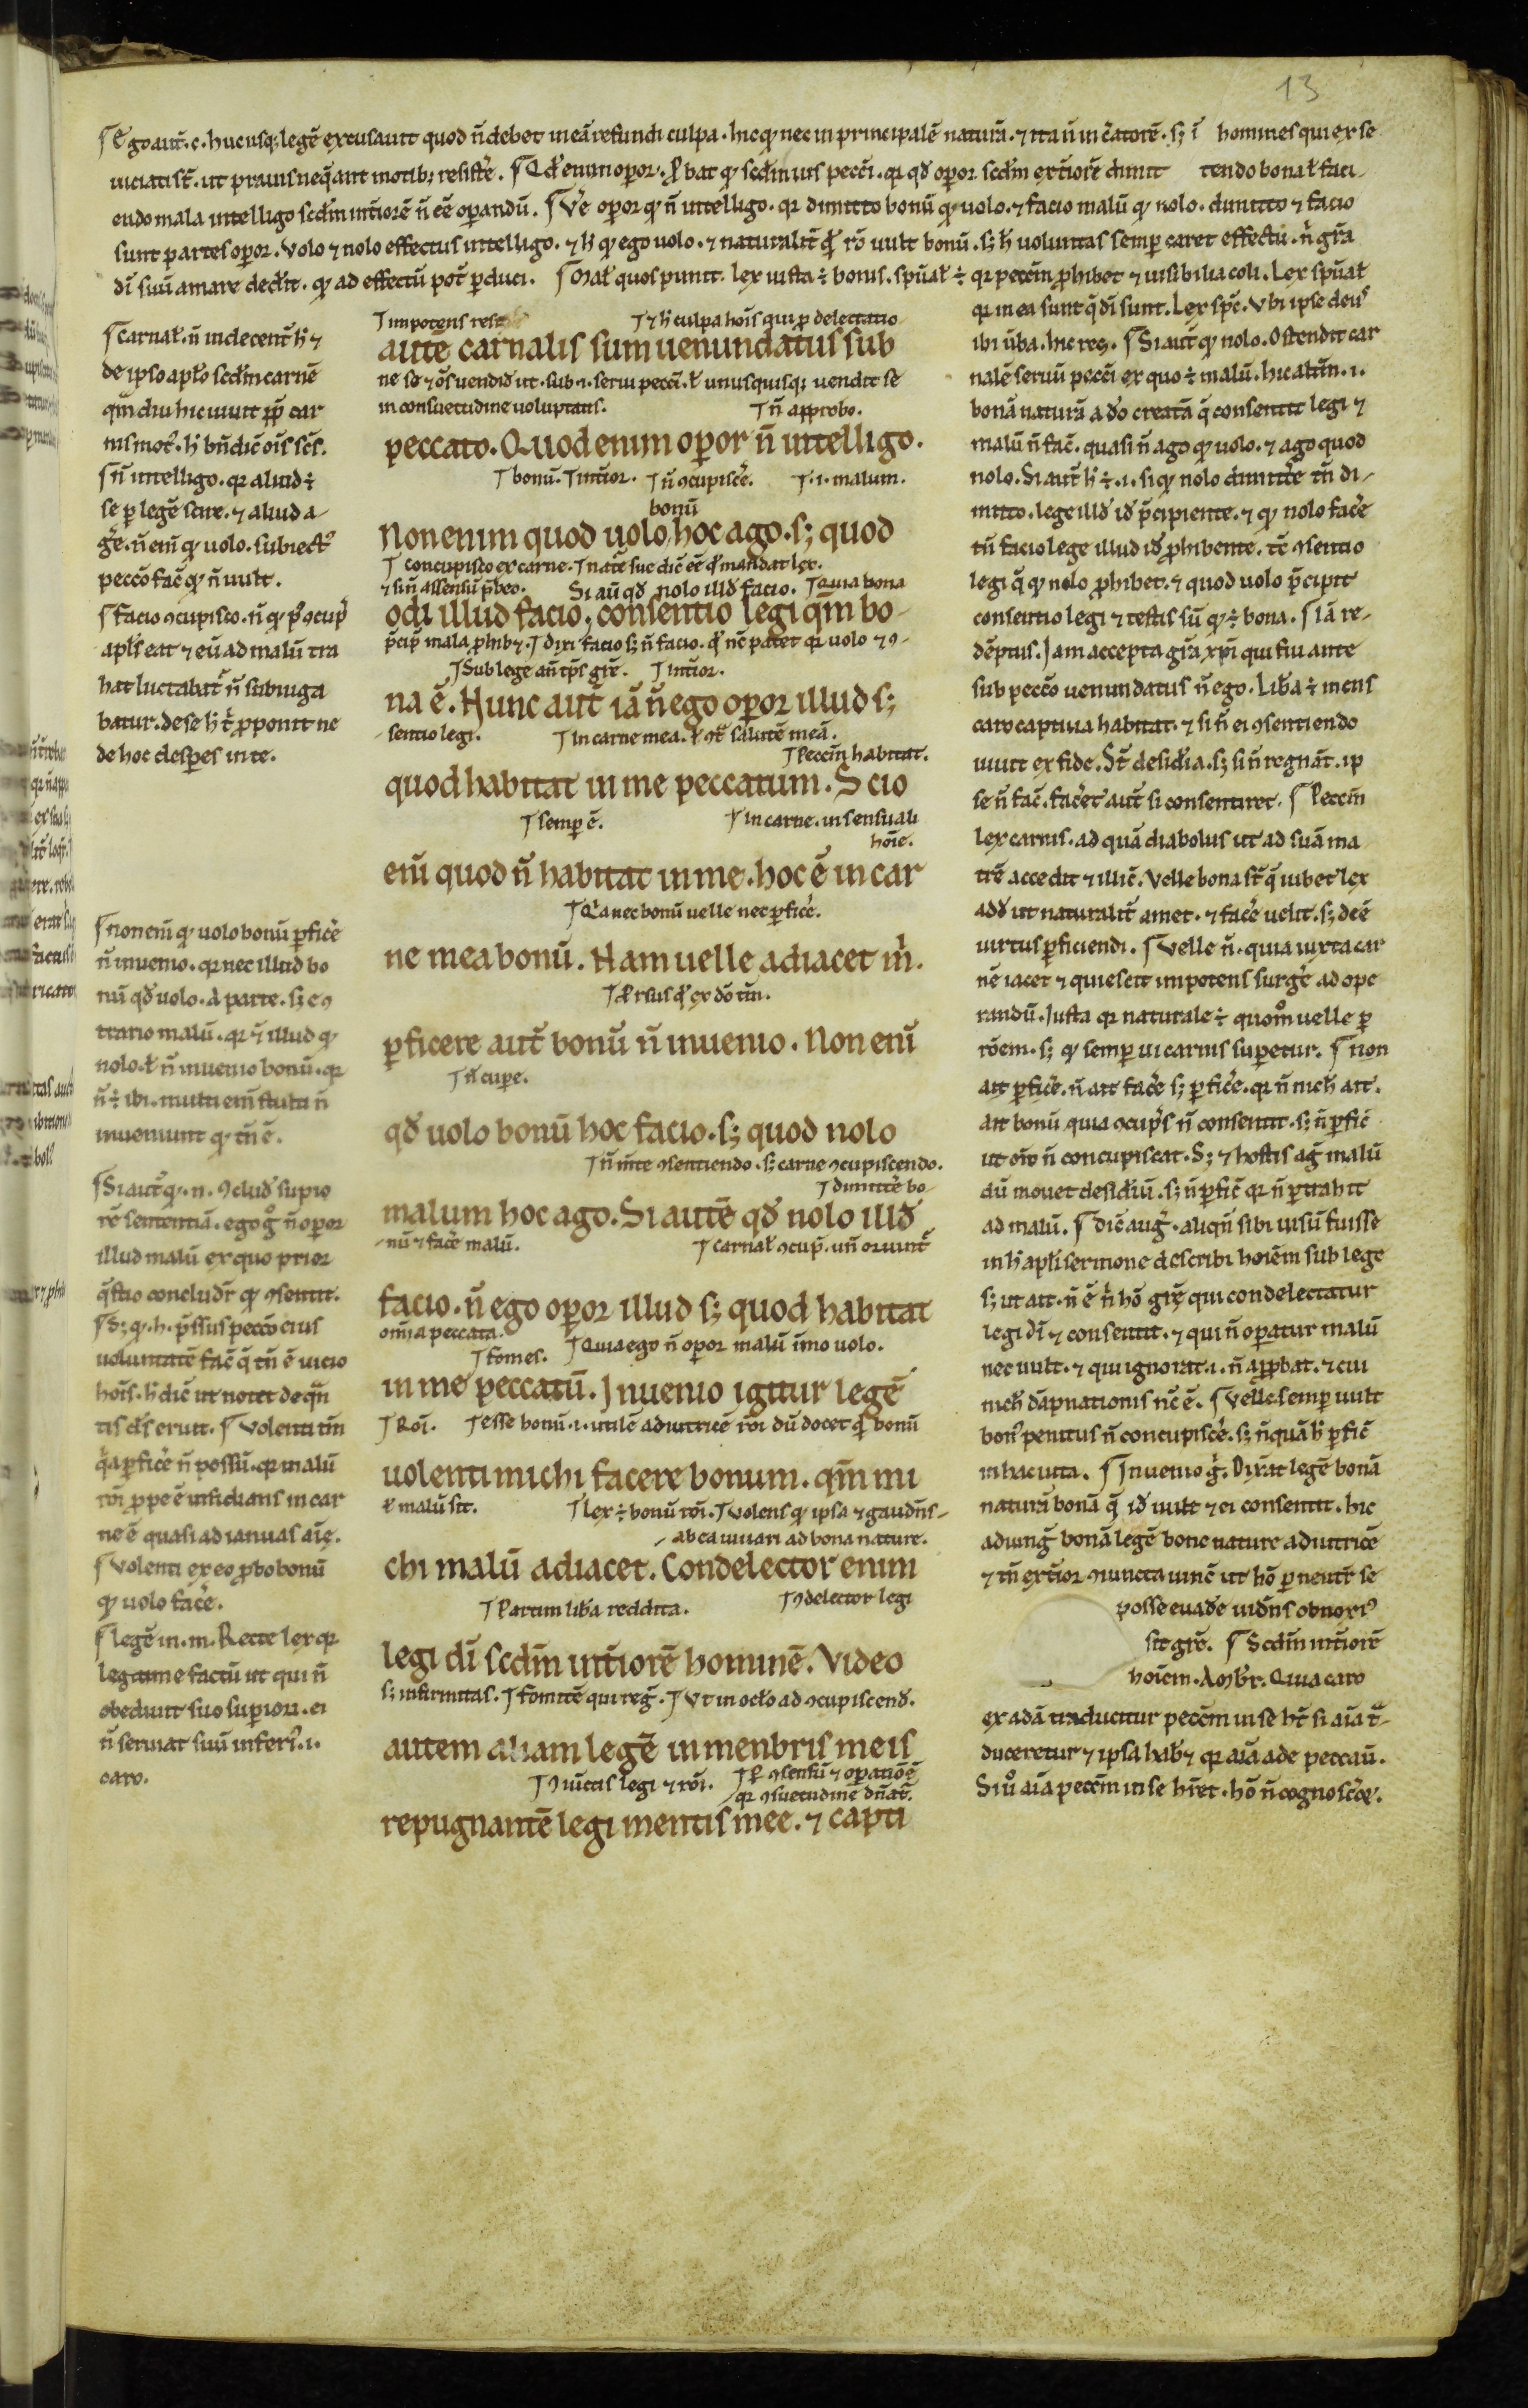 13
Ego aut̄. c. hucusq; legē excusauit quod n̄ debet in eā refundi culpa. hic qͥ nec in principalē naturā. ⁊ ita n̄ in c̄atorē. s; ī homines qui ex se
uiciati st̄. ut prauis neq̄ant motib; resistē. Qd̄ enim oꝑor. ꝓbat qͥ scd̄m uis pecc̄i. qr qd̄ oꝑor scd̄m ext̄iorē dimit tendo bona ł faci-
endo mala intelligo scd̄m int̄iorē n̄ eē oꝑandū. Vē oꝑor qͥ n̄ intelligo. qr dimitto bonū qͥ uolo. ⁊ facio malū qͥ nolo. dimitto ⁊ facio
sunt partes oꝑor. Volo ⁊ nolo effectus intelligo. ⁊ h̄ qͥ ego uolo. ⁊ naturalit̄ qͥ rō uult bonū. s; h̄ uoluntas semꝑ caret effectu. n̄ grā
dī suū amare ded̄it. qͥ ad effectū pot̄ ꝑduci.
lex iusta ÷ bonis. spūał ÷ qr pecc̄m ꝓhibet ⁊ inuisibilia coli. Lex spūał
qr in ea sunt q̄ dī sunt. Lex spc̄. Vbi ipse deus
ibi ūba. hic res. Si aut̄ qͥ nolo. Ostendit car
nalē seruū pecc̄i ex quo ÷ malū. hic alt̄m. i.
bonā naturā a dō creatā q̄ consentit legi ⁊
malū n̄ fac̄. quasi n̄ ago qͥ uolo. ⁊ ago quod
nolo. Si aut̄ h̄ ÷. i. si qͥ nolo dimittē tn̄ di-
mitto. lege illd̄ id̄ p̄cipiente. ⁊ qͥ nolo facē
tn̄ facio lege illud id̄ ꝓhibente. tc̄ ꝯsentio
legi q̄ qͥ nolo ꝓhibet. ⁊ quod uolo p̄cipit
consentio legi ⁊ testis sū qͥ ÷ bona. Iā re-
dēptus. Jam accepta grā xpi qui fui ante
sub pecc̄o uenundatus n̄ ego. Lib̄a ÷ mens
caro captiua habitat. ⁊ si n̄ ei ꝯsentiendo
uiuit ex fide. St̄ desid̄ia. s; si n̄ regnāt. ip
se n̄ fac̄. facēt aut̄ si consentiret. Pecc̄m
lex carnis. ad quā diabolus ut ad suā ma
trē accedit ⁊ illic̄. Velle bona st̄ q̄ iubet lex
add̄ ut naturalit̄ amet. ⁊ facē uelit. s; deē
uirtus ꝑficiendi. Velle n̄. quia iuxta car
nē iacet ⁊ quiescit impotens surgē ad ope
randū. Iusta qr naturale ÷ quom̊ uelle ꝑ
rōem. s; qͥ semꝑ ui carnis suꝑetur. non
ait ꝑficē. n̄ ait facē s; ꝑficē. qr n̄ nich̄ ait.
ait bonū quia ꝯcupīs n̄ consentit. s; n̄ ꝑfic̄
ut oīo n̄ concupiscat. S; ⁊ hostis aḡ malū
dū mouet desid̄iū. s; n̄ ꝑfic̄ qr n̄ ꝑtrahit
ad malū. Dic̄ aug̊. aliqn̄ sibi uisū fuisse
in h̄ apłi sermone describi hoīem sub lege
s; ut ait. n̄ ē n̄ hō grē qui condelectatur
legi dī ⁊ consentit. ⁊ qui n̄ oꝑatur malū
nec uult. ⁊ qui ignorat. i. n̄ aꝓbat. ⁊ cui
nich̄ dāpnationis nc̄ ē. Velle semꝑ uult
bon̄ penitus n̄ concupiscē. s; n̄quā h̄ ꝑfic̄
in hac uita. Inuenio g̊. Dix̄at legē bonā
naturā bonā q̄ id̄ uult ⁊ ei consentit. hic
adiung̊ bonā legē bone nature adiutricē
⁊ tn̄ ext̄ior ꝯiuncta uinc̄ ut hō ꝑ neutr̄ se
posse euadē uid̄ns obnoxi᷒
sit grē. Scd̄m int̄iorē
hoīem. Ambr̄. Quia caro
ex adā traducitur pecc̄m in se ht̄ si aīa t̄-
duceretur ⁊ ipsa hab⁊ qr aīa ade peccau.
Si ů aīa pecc̄m in se hr̄et. hō n̄ cognosc̄e.
Carnał. n̄ indecent̄ h̄ ⁊
de ipso apło scd̄m carnē
qm̄ diu hic uiuit ꝓp̄ car
nis mot᷒. h̄ bn̄ dic̄ oīs sc̄s.
n̄ intelligo. qr aliud ÷
se ꝑ legē scire. ⁊ aliud a-
gē. n̄ enī qͥ uolo. subiect᷒
pecc̄o fac̄ qͥ n̄ uult.
facio ꝯcupisco. n̄ qͥ p̄ ꝯcup̄
apłs eat ⁊ eū ad malū tra
hat luctabit̄ n̄ subiuga
batur. de se h̄ t̄ ꝓponit ne
de hoc desꝑes in te.
non enī qͥ uolo bonū ꝑficē
n̄ inuenio. qr nec illud bo
nū qd̄ uolo. a parte. s; e ꝯ
trario malū. qr n̄ illud qͥ
nolo. ł n̄ inuenio bonū. qr
n̄ ÷ ibi. multi enī stulti n̄
inueniunt qͥ tn̄ ē.
Si aut̄ qͥ. n. ꝯclud̄ supio
rē sententiā. ego g̊ n̄ oꝑor
illud malū ex quo prior
q̄stio concludr̄ qͥ ꝯsentit.
S; qͥ. h. p̄ssus pecc̄o eius
uoluntatē fac̄ q̄ tn̄ ē uicio
hoīs. h̄ dic̄ ut notet de q̄n
tis ds̄ eruit. Volenti tm̄
q̄a ꝑficē n̄ possū. qr malū
rōi ꝓpe ē insidians in car
ne ē quasi ad ianuas aīę.
Volenti ex eo ꝓbo bonū
qͥ uolo facē.
legē in. m. Recte lex qr
legitime factū ut qui n̄
obediuit suo suꝑiori. ei
n̄ seruiat suū inferi᷒. i.
caro.
impotens
⁊ h̄ culpa hoīs qui ꝑ delectatio
autē carnalis sum uenundatus sub
ne se ⁊ os̄ uendid̄it. sub. i. serui pecc̄i. ł unusquisq; uendit se
in consuetudine uoluptatis. n̄ approbo.
peccato. Quod enim oꝑor n̄ intelligo.
bonū. int̄ior. n̄ ꝯcupiscē. i. malum.
bonū
Non enim quod uolo hoc ago. s; quod
concupisco ex carne. nat̄e sue dic̄ eē qͥ mandat lex.
⁊ si n̄ assensū p̄beo. Si aū qd̄ nolo illd̄ facio. Quia bona
odi illud facio, consentio legi qm̄ bo-
p̄cip̄ mala ꝓhib⁊. Dixi facio s; n̄ facio. qͥ nē patet qr uolo ⁊ ꝯ-
Sub lege an̄ tp̄s grē. int̄ior.
na ē. Nunc aut̄ iā n̄ ego oꝑor illud s;
sentio legi. In carne mea. ł ꝯt̄ salutē meā.
Pecc̄m habitat.
quod habitat in me peccatum. Scio
semꝑ ē. In carne. in sensuali
hoīe.
enī quod n̄ habitat in me. hoc ē in car
Q̄a nec bonū uelle nec ꝑficē.
ne mea bonū. Nam uelle adiacet m̄.
ꝑficere aut̄ bonū n̄ inuenio. Non enī
n̄ cupe.
qd̄ uolo bonū hoc facio. s; quod nolo
n̄ m̄te ꝯsentiendo. s; carne ꝯcupiscendo.
dimittē bo-
malum hoc ago. Si autē qd̄ nolo illd̄
nū ⁊ facē malū. carnał ꝯcup̄. un̄ oriunt̄
facio. n̄ ego oꝑor illud s; quod habitat
omīa peccata. fomes. Quia ego n̄ oꝑor malū īmo uolo.
in me peccatū. Jnuenio igitur legē
Roī. esse bonū. i. utilē adiutricē rōi dū docet qͥ bonū
uolenti michi facere bonum. qm̄ mi
ł malū sit. lex ÷ bonū rōi. Volens qͥ ipsa ⁊ gaud̄ns-
ab ea iuuari ad bona nature.
chi malū adiacet. Condelector enim
Partim lib̄a reddita. ꝯdelector legi
legi dī scd̄m int̄iorē hominē. Video
s; infirmitas. fomitē qui reg̊. Vt in oc̄lo ad ꝯcupiscend̄.
autem aliam legē in menbris meis
ꝯiūctis legi ⁊ rōi. ꝑ ꝯsensū ⁊ oꝑationē
qr ꝯsuetudinē dn̄at̄.
repugnantē legi mentis mee. ⁊ capti